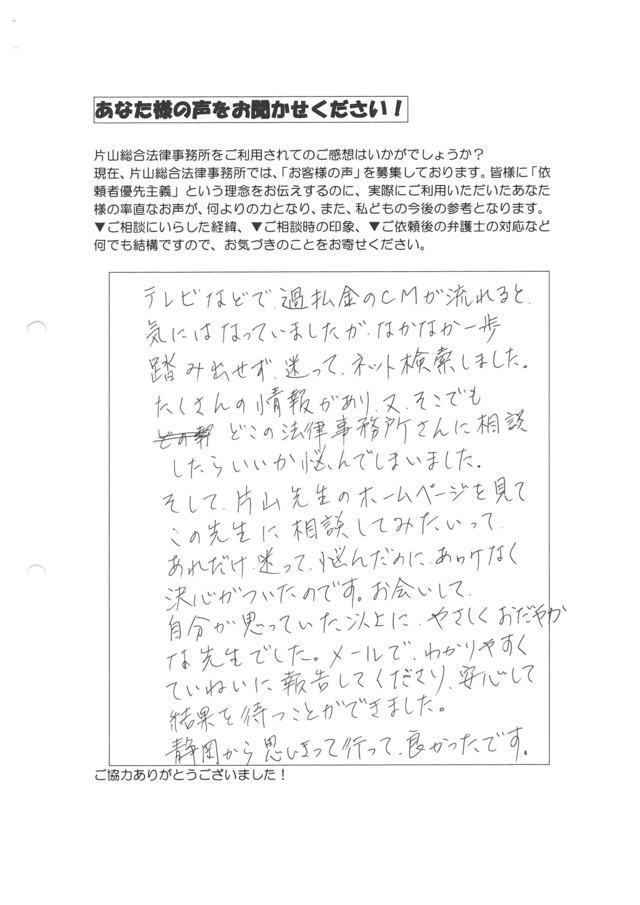 あなた様の声をお聞かせください！
片山総合法律事務所をご利用されてのご感想はいかがでしょうか？
現在、片山総合法律事務所では、「お客様の声」を募集しております。皆様に「依
頼者優先主義」という理念をお伝えするのに、実際にご利用いただいたあなた
様の率直なお声が、何よりの力となり、また、私どもの今後の参考となります。
▼ご相談にいらした経緯、▼ご相談時の印象、▼ご依頼後の弁護士の対応など
何でも結構ですので、お気づきのことをお寄せください。
テレビなどで、過払金のCMが流れると、
気にはなっていましたが、なかなか一歩
踏み出せず、迷って、ネット検索しました。
たくさんの情報があり、又、そこでも
どこの法律事務所さんに相談
したらいいか悩んでしまいました。
そして、片山先生のホームページを見て
この先生に相談してみたいって、
あれだけ迷って、悩んだのに、あっけなく
決心がついたのです。お会いして、
自分が思っていた以上に、やさしくおだやか
な先生でした。メールで、わかりやすく
ていねいに報告してくださり、安心して
結果を待つことができました。
静岡から思いきって行って、良かったです。
ご協力ありがとうございました！